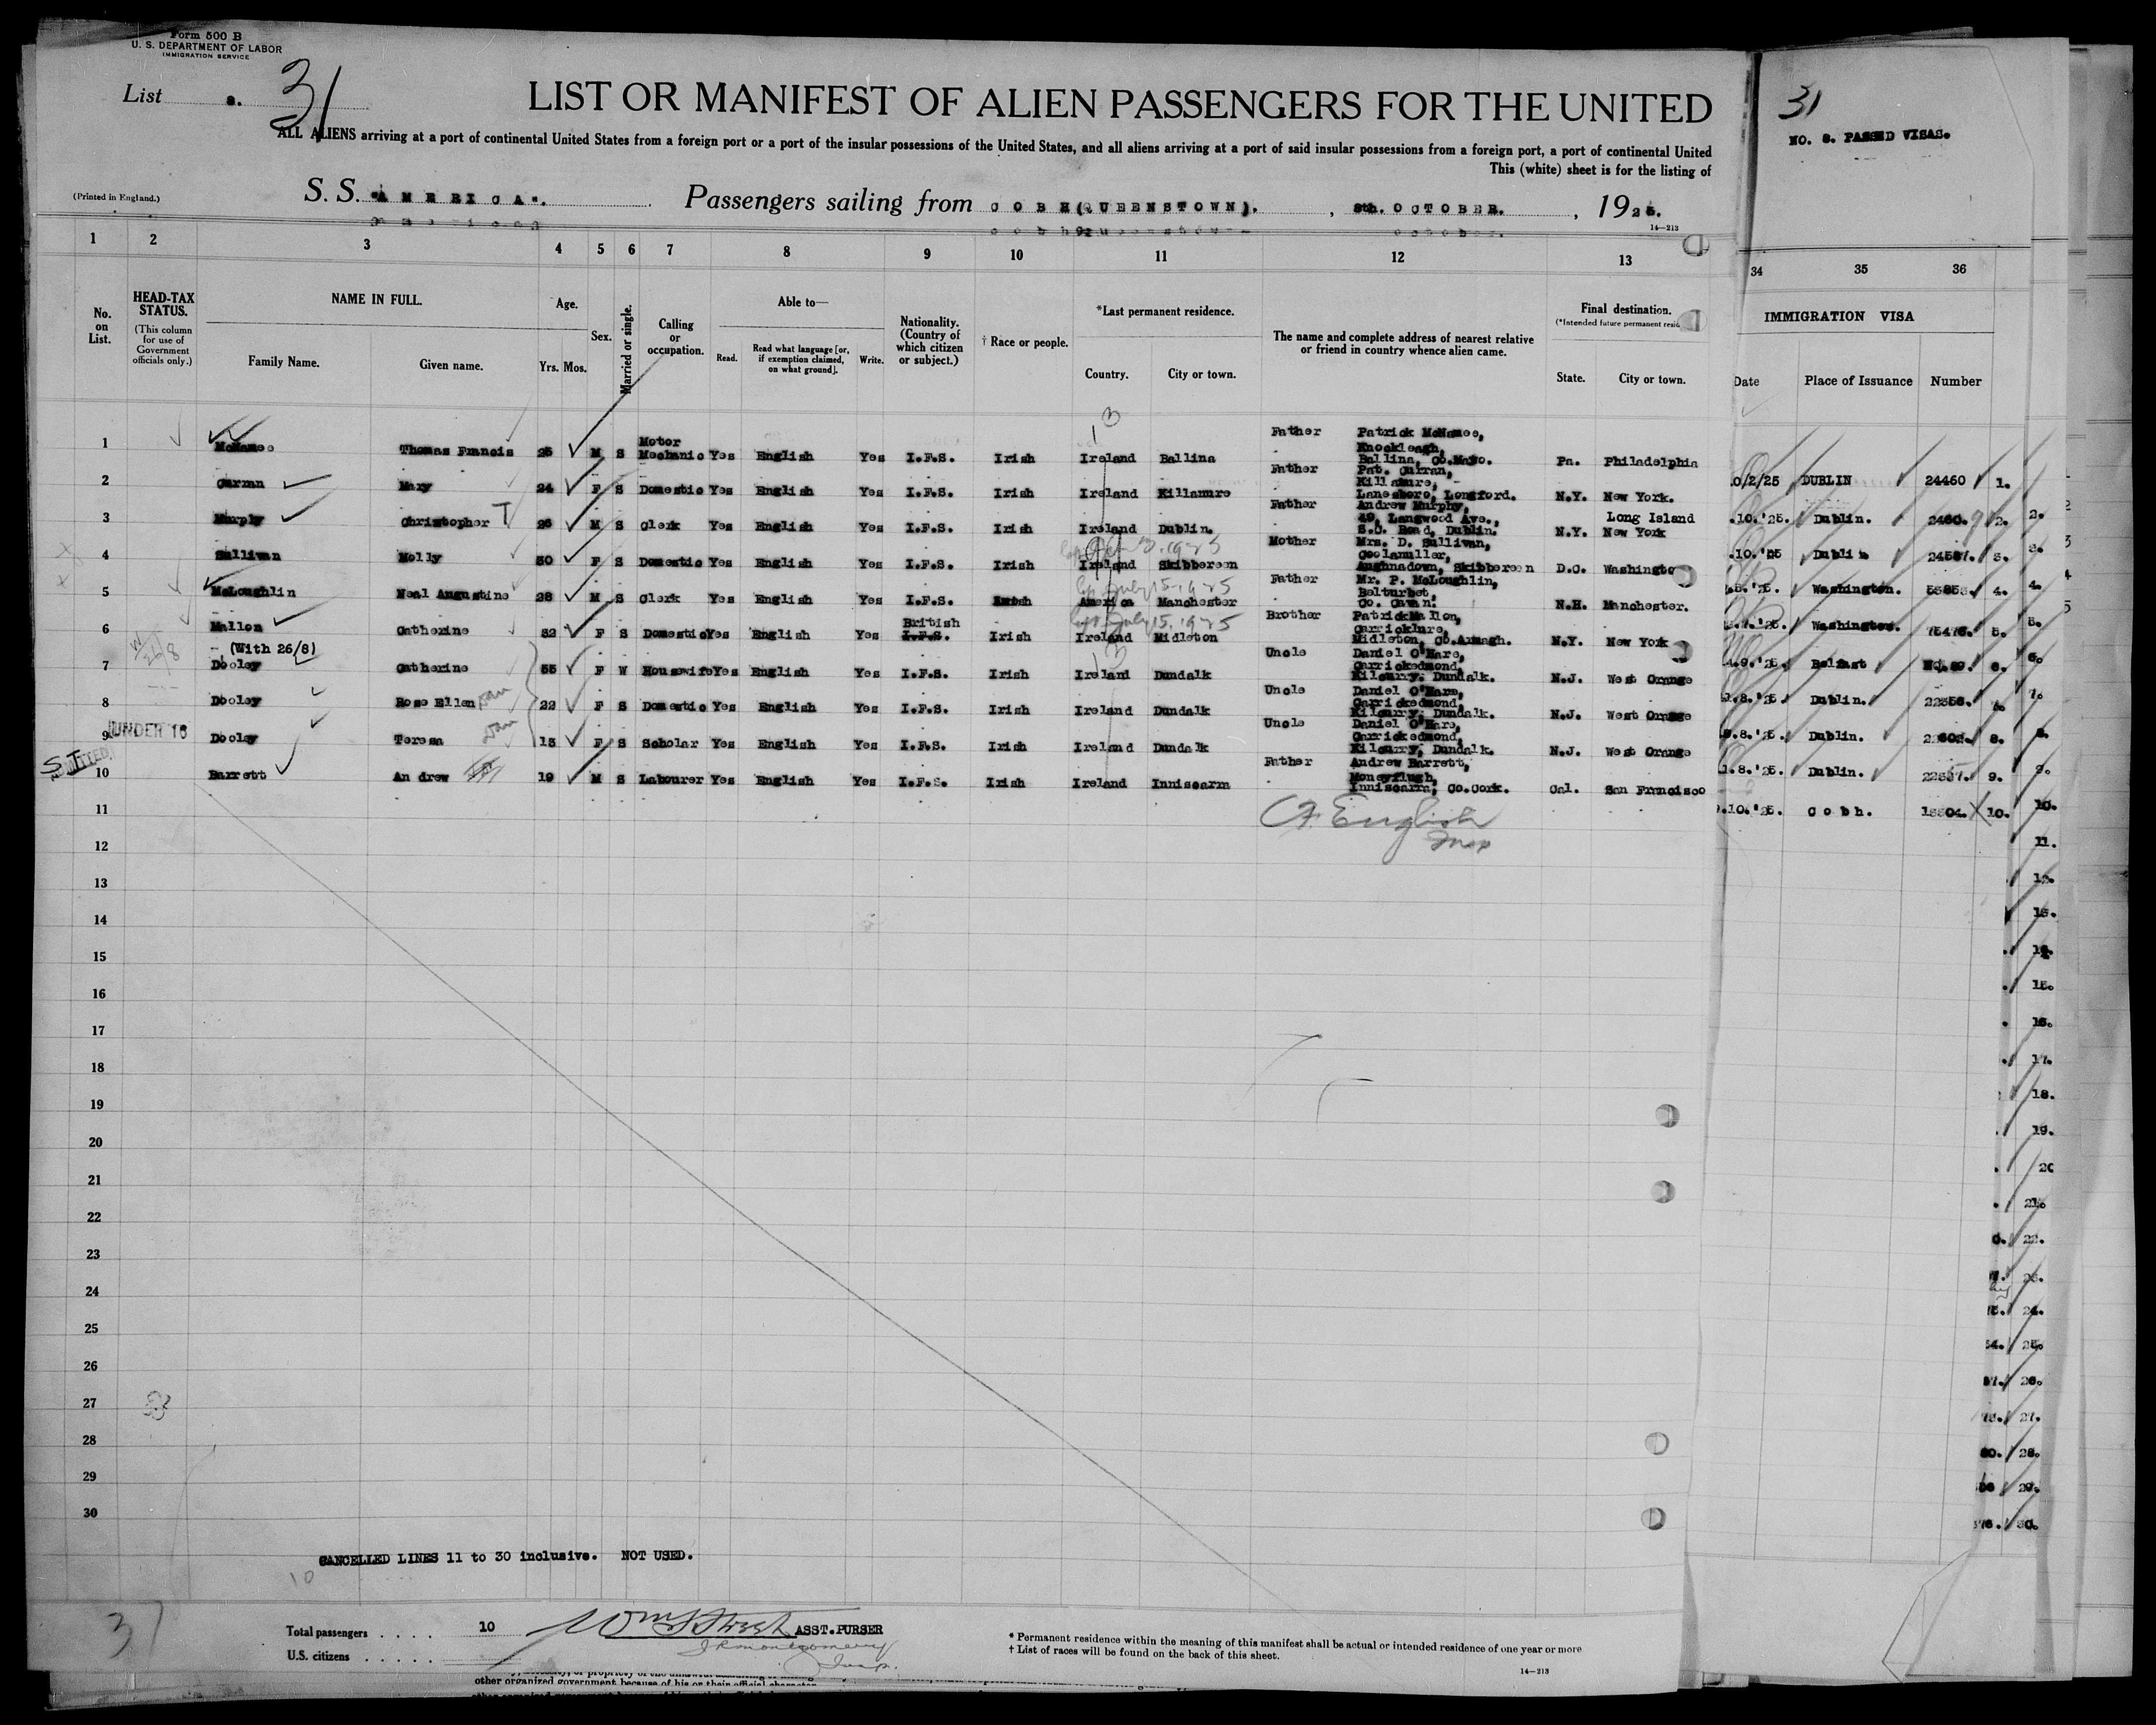 Form 500 B
U. S. DEPARTMENT OF LABOR
IMMIGRATION SERVICE
List 8. 31
LIST OR MANIFEST OF ALIEN PASSENGERS FOR THE UNITED
ALL ALIENS arriving at a port of continental United States from a foreign port or a port of the insular possessions of the United States, and all aliens arriving at a port of said insular possessions from a foreign port, a port of continental United
This (white) sheet is for the listing of
(Printed in England.)
S. S. "AMERICA". Passengers sailing from COBH(QUEENSTOWN). , 8th. OCTOBER. , 1925.
14—213
31
NO. 8. PASSED VISAS.
1 2 3 4 5 6 7 8 9 10 11 12 13
34 35 36
No. on List.
HEAD-TAX STATUS.
(This column for use of Government officials only.)
NAME IN FULL.
Family Name. Given name.
Age.
Yrs. Mos.
Sex.
Married or single.
Calling or occupation.
Able to—
Read. Read what language [or, if exemption claimed, on what ground]. Write.
Nationality. (Country of which citizen or subject.)
† Race or people.
*Last permanent residence.
Country. City or town.
The name and complete address of nearest relative or friend in country whence alien came.
Final destination.
(*Intended future permanent resid
State. City or town.
IMMIGRATION VISA
Date Place of Issuance Number
1 McNamee Thomas Francis 25 M S Motor Mechanic Yes English Yes I.F.S. Irish Ireland Ballina Father Patrick McNamee, Knockleagh, Ballina, Co.Mayo. Pa. Philadelphia
2 Curran Mary 24 F S Domestic Yes English Yes I.F.S. Irish Ireland Killamre Father Pat. Curran, Killamre, Lanesboro, Longford. N.Y. New York.
3 Murphy Christopher T 26 M S Clerk Yes English Yes I.F.S. Irish Ireland Dublin. Father Andrew Murphy, 49, Langwood Ave., S.C. Road, Dublin. N.Y. Long Island New York
4 Sullivan Molly 30 F S Domestic Yes English Yes I.F.S. Irish Ireland Skibbereen Mother Mrs. D. Sullivan, Coolamuller, Aughnadown, Skibbereen D.C. Washingto
5 McLoughlin Neal Augustine 28 M S Clerk Yes English Yes I.F.S. Irish America Manchester Father Mr. P. McLoughlin, Belturbet, Co. Cavan. N.H. Manchester.
July 15. 1925
6 Mallon Catherine 32 F S Domestic Yes English Yes British I.F.S. Irish Ireland Midleton Brother Patrick Mallon, Garricklure, Midleton, Co.Armagh. N.Y. New York
July 15. 1925
(With 26/8)
7 Dooley Catherine 55 F W Housewife Yes English Yes I.F.S. Irish Ireland Dundalk Uncle Daniel O'Hare, Carrickedmond, Kilcurry, Dundalk. N.J. West Orange
8 Dooley Rose Ellen 22 F S Domestic Yes English Yes I.F.S. Irish Ireland Dundalk Uncle Daniel O'Hare, Carrickedmond, Kilcurry, Dundalk. N.J. West Orange
UNDER 16
9 Dooley Teresa 15 F S Scholar Yes English Yes I.F.S. Irish Ireland Dundalk Uncle Daniel O'Hare, Carrickedmond, Kilcurry, Dundalk. N.J. West Orange
10 Barrett Andrew 19 M S Labourer Yes English Yes I.F.S. Irish Ireland Inniscarra Father Andrew Barrett, Moneyflugh, Inniscarra, Co.Cork. Cal. San Francisco
0/2/25 DUBLIN 24460 1.
.10.'25. Dublin. 2.
.10.'25 Dublin 3.
Washington. 4.
Washington. 5.
Belfast 6.
Dublin. 22358.
Dublin. 8.
.8.'25. Dublin. 9.
.10.'25. Cobh. 10.
English
Insp
11
12
13
14
15
16
17
18
19
20
21
22
23
24
25
26
27
28
29
30
CANCELLED LINES 11 to 30 inclusive. NOT USED.
10
31
Total passengers . . . . 10
ASST.PURSER
U. S. citizens . . . . .
J R Montgomery
Insp.
* Permanent residence within the meaning of this manifest shall be actual or intended residence of one year or more
† List of races will be found on the back of this sheet.
14—213
other organized government because of his or their official character